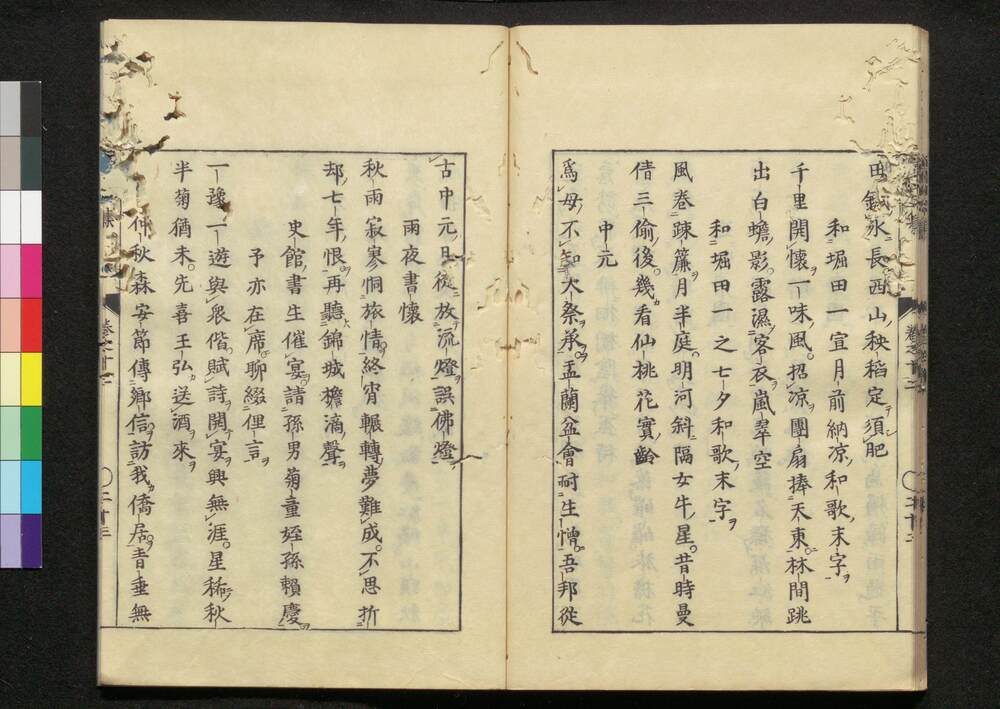 田鋪氷長西山秧稻定須肥
和堀田一宣月前納凉和歌末字
千里開懷一味風招凉團扇捧天東林間跳
出白蟾影露濕客衣嵐翠空
和堀田一之七夕和歌末字
風卷踈簾月半庭明河斜隔女牛星昔時曼
倩三偷後幾看仙桃花實齡
中元
爲母不知大祭承盂蘭盆會耐生憎吾邦從
古中元月徒放流燈誤佛燈
雨夜書懷
秋雨寂寥恫旅情終宵輾轉夢難成不思折
却七年恨再聽錦城檐滴聲
史館書生催宴請孫男菊童姪孫賴慶
予亦在席聊綴俚言
一豫一遊與衆偕賦詩開宴興無涯星稀秋
半菊猶未先喜王弘送酒來
仲秋森安節傳鄉信訪我僑居昔垂無
卷之十二
二十二
卷之十二
二十三